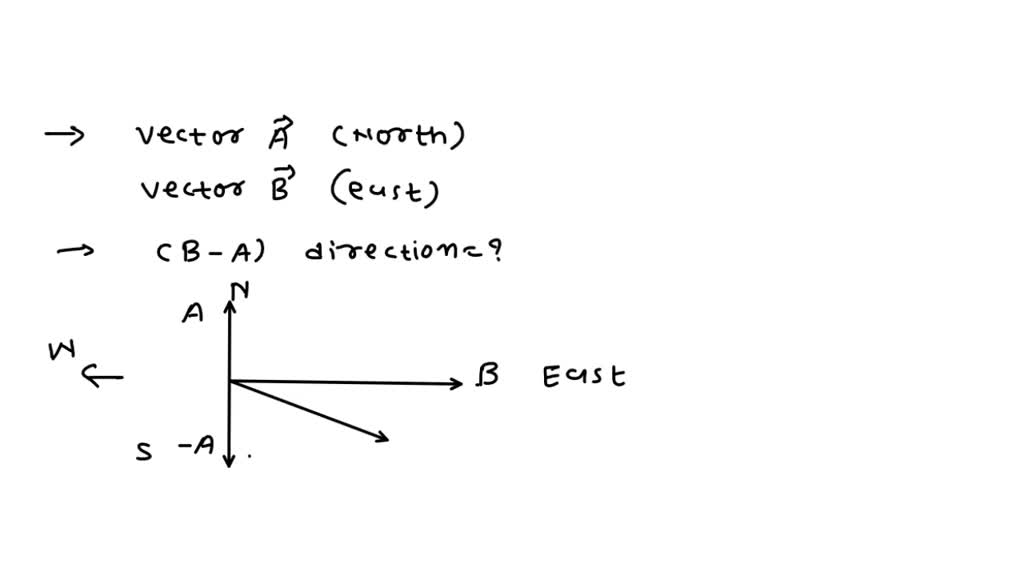 → vector A⃗ (North)
vector B⃗ (east)
→ (B-A) direction=?
N
A
W
B East
S -A